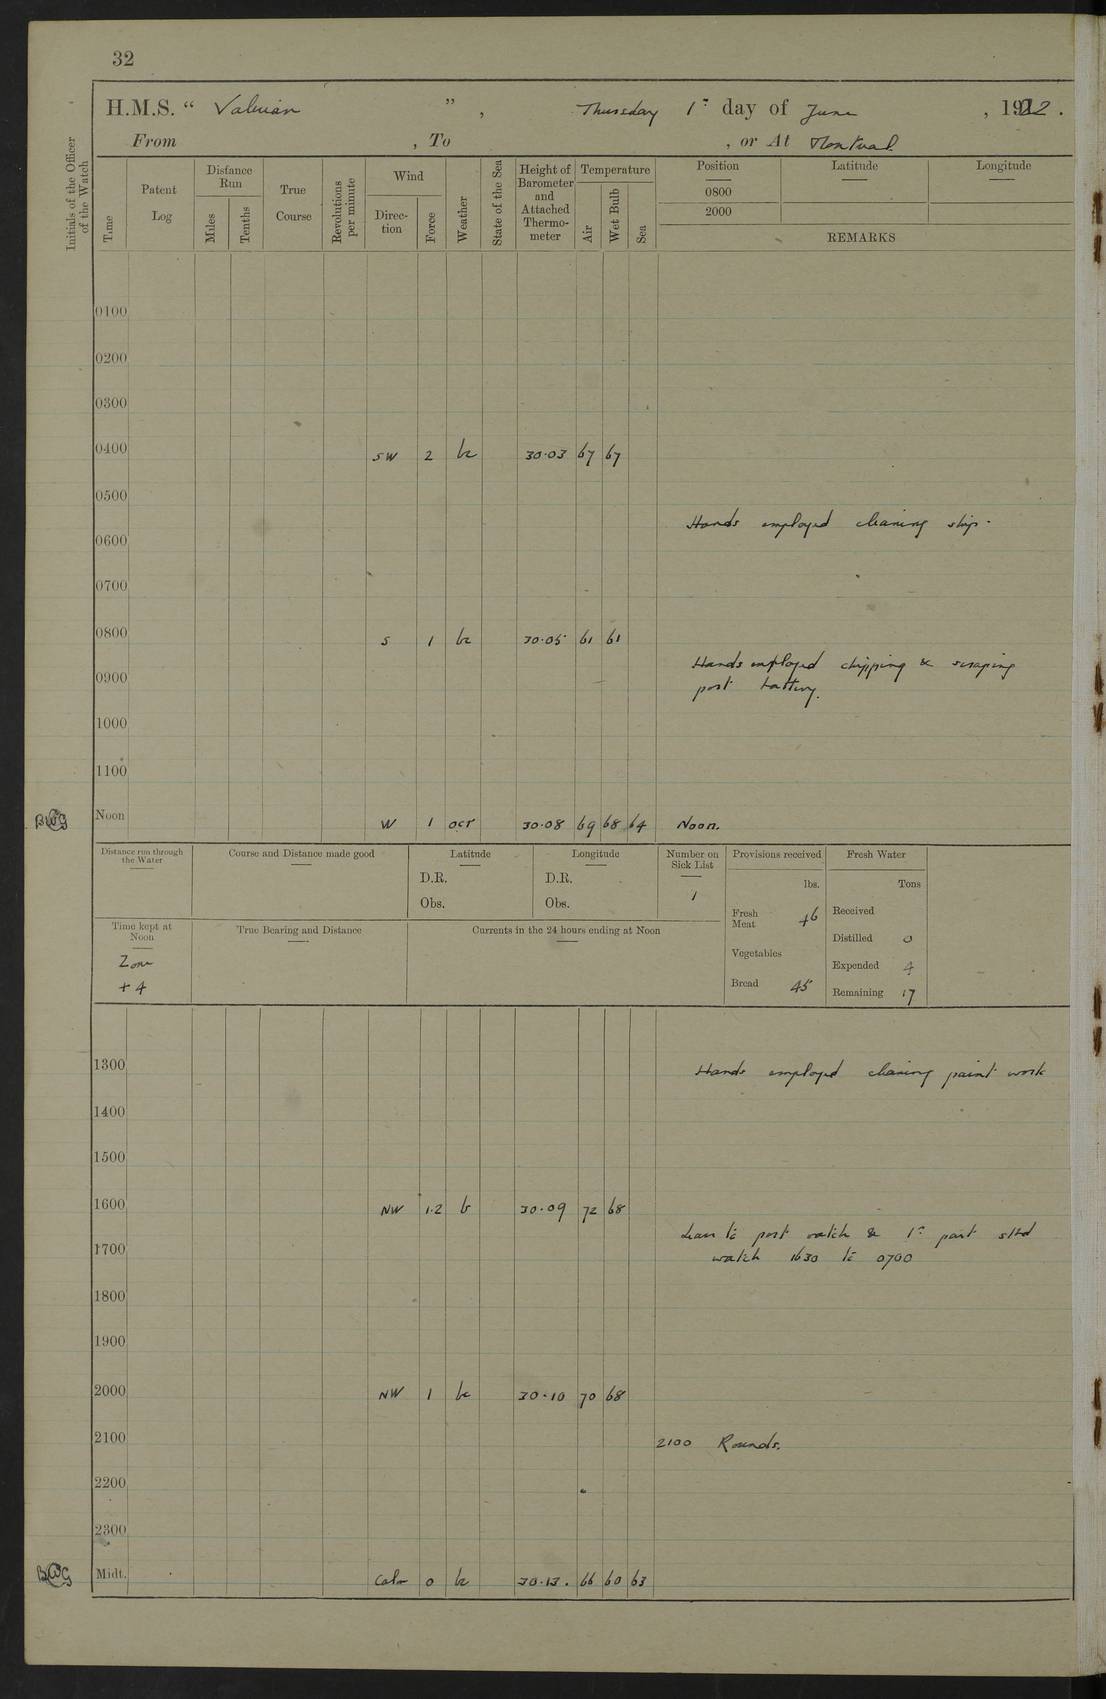 32
H.M.S. “ Valerian ” , Thursday 1st day of June , 1922.
From , To , or At Montreal
Initials of the Officer of the Watch
Time
Patent Log
Distance Run
Miles
Tenths
True Course
Revolutions per minute
Wind
Direc-tion
Force
Weather
State of the Sea
Height of Barometer and Attached Thermo-meter
Temperature
Air
Wet Bulb
Sea
Position
0800
2000
Latitude
Longitude
REMARKS
0100
0200
0300
0400 SW 2 bc 30·03 67 67
0500
Hands employed cleaning ship.
0600
0700
0800 S 1 bc 30·05 61 61
Hands employed chipping & scraping
0900
port battery.
1000
1100
BWG Noon W 1 ocr 30·08 69 68 64 Noon.
Distance run through the Water
Course and Distance made good
Latitude
D.R.
Obs.
Longitude
D.R.
Obs.
Number on Sick List
1
Provisions received
lbs.
Fresh Meat 46
Vegetables
Bread 45
Fresh Water
Tons
Received
Distilled 0
Expended 4
Remaining 17
Time kept at Noon
Zone
+ 4
True Bearing and Distance
Currents in the 24 hours ending at Noon
1300 Hands employed cleaning paint work
1400
1500
1600 NW 1·2 b 30·09 72 68
Leave to port watch & 1st part stbd
1700 watch 1630 to 0700
1800
1900
2000 NW 1 bc 30·10 70 68
2100 2100 Rounds.
2200
2300
BWG Midt. Calm 0 bc 30·13. 66 60 63